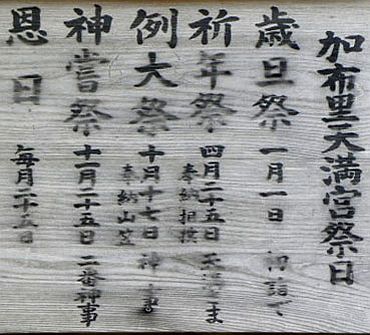 加布里天満宮祭日
歳旦祭 一月一日 初詣で
祈年祭 四月二十五日
奉納相撲
例大祭 十月十七日
奉納山笠
神嘗祭 十一月二十五日 二番神事
恩日 毎月二十五日